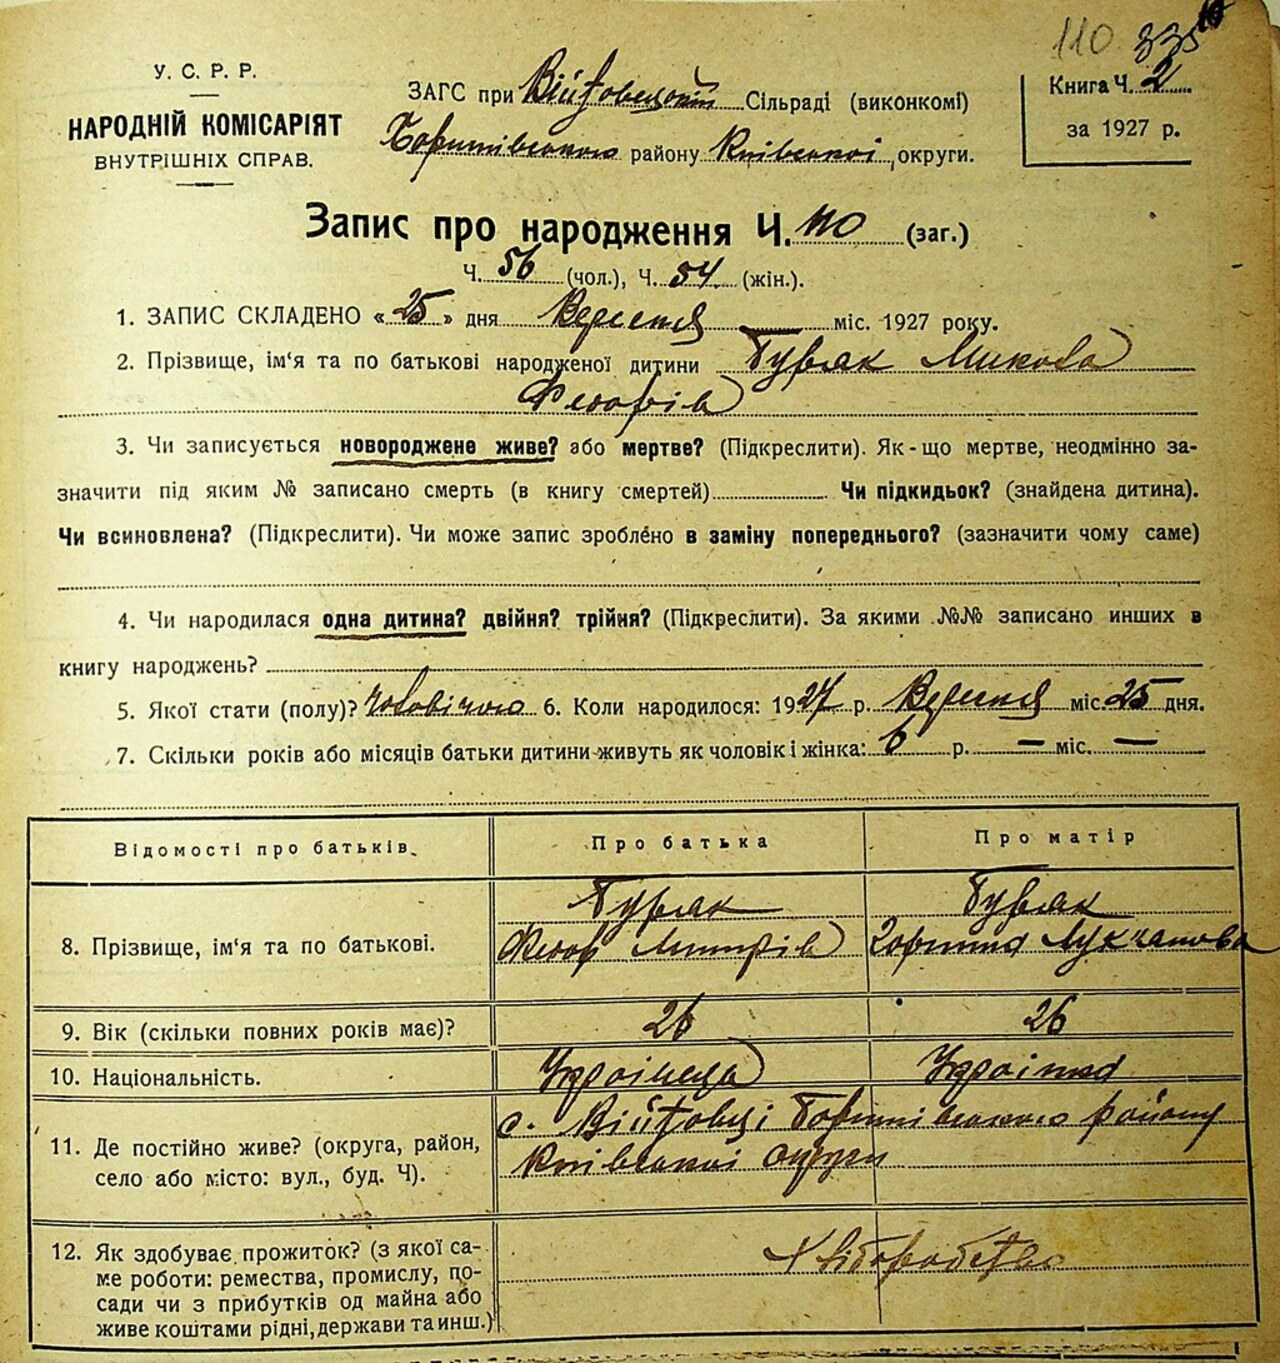 110 335
У. С. Р. Р.
НАРОДНІЙ КОМІСАРІЯТ
ВНУТРІШНІХ СПРАВ.
ЗАГС при Війтовецькій Сільраді (виконкомі)
Бориспівського району Київської округи.
Книга Ч. 2
за 1927 р.
Запис про народження Ч. 110 (заг.)
Ч. 56 (чол.), Ч. 54 (жін.).
1. ЗАПИС СКЛАДЕНО «25» дня Вересня міс. 1927 року.
2. Прізвище, ім‘я та по батькові народженої дитини Буряк Микола
Федорів
3. Чи записується новороджене живе? або мертве? (Підкреслити). Як-що мертве, неодмінно за-
значити під яким № записано смерть (в книгу смертей) Чи підкидьок? (знайдена дитина).
Чи всиновлена? (Підкреслити). Чи може запис зроблено в заміну попереднього? (зазначити чому саме)
4. Чи народилася одна дитина? двійня? трійня? (Підкреслити). За якими №№ записано инших в
книгу народжень?
5. Якої стати (полу)? чоловічого 6. Коли народилося: 1927 р. Вересня міс. 25 дня.
7. Скільки років або місяців батьки дитини живуть як чоловік і жінка: 6 р. — міс. —
Відомості про батьків. Про батька Про матір
8. Прізвище, ім‘я та по батькові.
Буряк Буряк
Федор Дмитрів
9. Вік (скільки повних років має)? 26 26
10. Національність. Українець Українка
11. Де постійно живе? (округа, район,
село або місто: вул., буд. Ч).
с. Війтовці Бориспівського району
Київської округи
12. Як здобуває прожиток? (з якої са-
ме роботи: ремества, промислу, по-
сади чи з прибутків од майна або
живе коштами рідні, держави та инш.)
Хліборобство